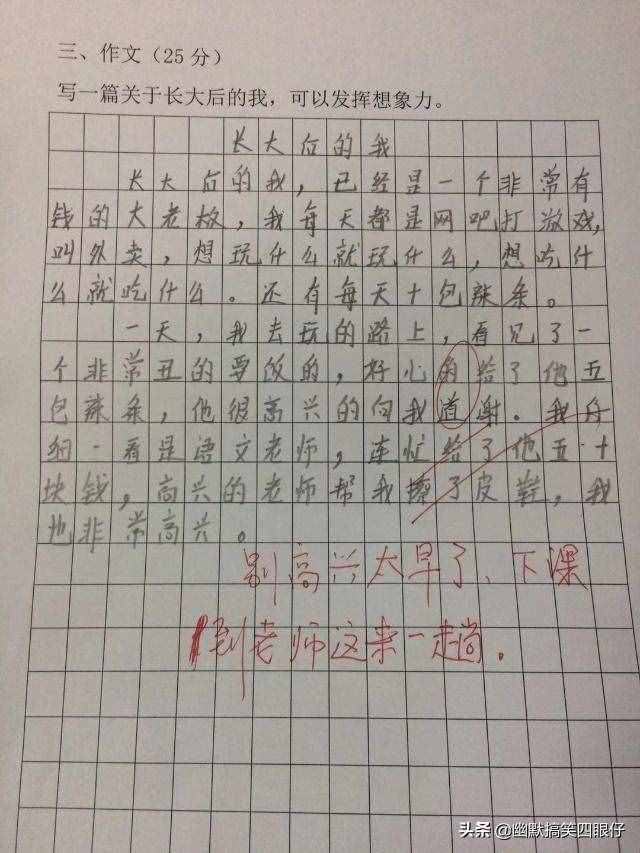 三、作文（25分）
写一篇关于长大后的我，可以发挥想象力。
长大后的我
长大后的我，已经是一个非常有
钱的大老板，我每天都是网吧打游戏,
叫外卖，想玩什么就玩什么，想吃什
么就吃什么。还有每天十包辣条。
一天，我去玩的路上，看见了一
个非常丑的要饭的，好心的给了他五
包辣条，他很高兴的向我道谢。我仔
细一看是语文老师，连忙给了他五十
块钱，高兴的老师帮我擦了皮鞋，我
也非常高兴。
别高兴太早了、下课
到老师这来一趟。
头条 @幽默搞笑四眼仔